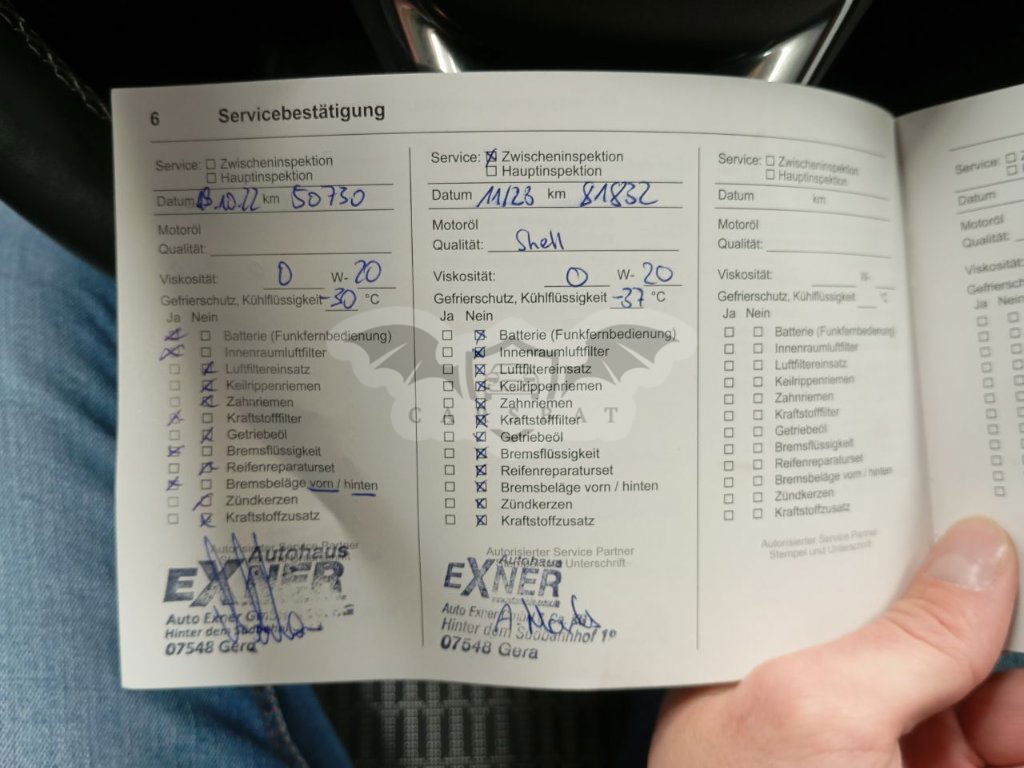 6 Servicebestätigung
Service: ☐ Zwischeninspektion
☐ Hauptinspektion
Datum 10.22 km 50730
Motoröl
Qualität:
Viskosität: 0 W- 20
Gefrierschutz, Kühlflüssigkeit -30 °C
Ja Nein
☒ ☐ Batterie (Funkfernbedienung)
☒ ☐ Innenraumluftfilter
☐ ☒ Luftfiltereinsatz
☐ ☒ Keilrippenriemen
☐ ☒ Zahnriemen
☒ ☐ Kraftstofffilter
☐ ☒ Getriebeöl
☒ ☐ Bremsflüssigkeit
☐ ☒ Reifenreparaturset
☒ ☐ Bremsbeläge vorn / hinten
☐ ☒ Zündkerzen
☐ ☒ Kraftstoffzusatz
Autorisierter Service Partner
Autohaus
EXNER
Auto Exner
Hinter dem
07548 Gera
Service: ☒ Zwischeninspektion
☐ Hauptinspektion
Datum 11/23 km 81832
Motoröl
Qualität: Shell
Viskosität: 0 W- 20
Gefrierschutz, Kühlflüssigkeit -37 °C
Ja Nein
☐ ☒ Batterie (Funkfernbedienung)
☐ ☒ Innenraumluftfilter
☐ ☒ Luftfiltereinsatz
☐ ☒ Keilrippenriemen
☐ ☒ Zahnriemen
☐ ☒ Kraftstofffilter
☐ ☒ Getriebeöl
☐ ☒ Bremsflüssigkeit
☐ ☒ Reifenreparaturset
☐ ☒ Bremsbeläge vorn / hinten
☐ ☒ Zündkerzen
☐ ☒ Kraftstoffzusatz
Autorisierter Service Partner
Stempel und Unterschrift
Autohaus
EXNER
Auto Exner
Hinter dem Südbahnhof 1º
07548 Gera
Service: ☐ Zwischeninspektion
☐ Hauptinspektion
Datum km
Motoröl
Qualität:
Viskosität: W-
Gefrierschutz, Kühlflüssigkeit °C
Ja Nein
☐ ☐ Batterie (Funkfernbedienung)
☐ ☐ Innenraumluftfilter
☐ ☐ Luftfiltereinsatz
☐ ☐ Keilrippenriemen
☐ ☐ Zahnriemen
☐ ☐ Kraftstofffilter
☐ ☐ Getriebeöl
☐ ☐ Bremsflüssigkeit
☐ ☐ Reifenreparaturset
☐ ☐ Bremsbeläge vorn / hinten
☐ ☐ Zündkerzen
☐ ☐ Kraftstoffzusatz
Autorisierter Service Partner
Stempel und Unterschrift
Service: ☐
Datum
Motoröl
Qualität:
Ja Nein